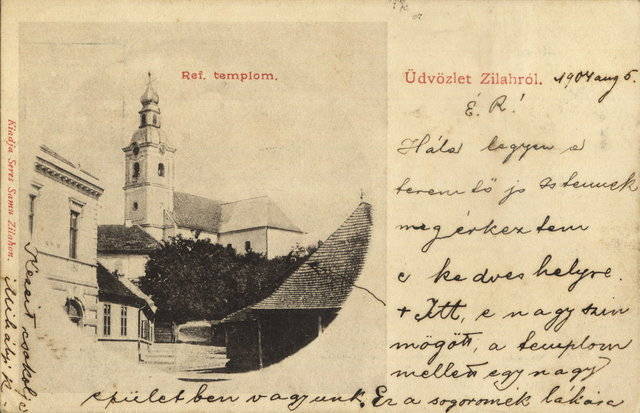 Ref. templom.
Üdvözlet Zilahról.
1904 aug 6.
É. R!
Hála legyen a
teremtő jó Istennek
megérkeztem
e kedves helyre.
+ Itt, e nagy szin
mögött, a templom
mellett egy nagy
épületben vagyunk. Ez a sogoromék lakása
Kezeit csókolja
Mihályi K.
Kiadja Seres Samu Zilahon.